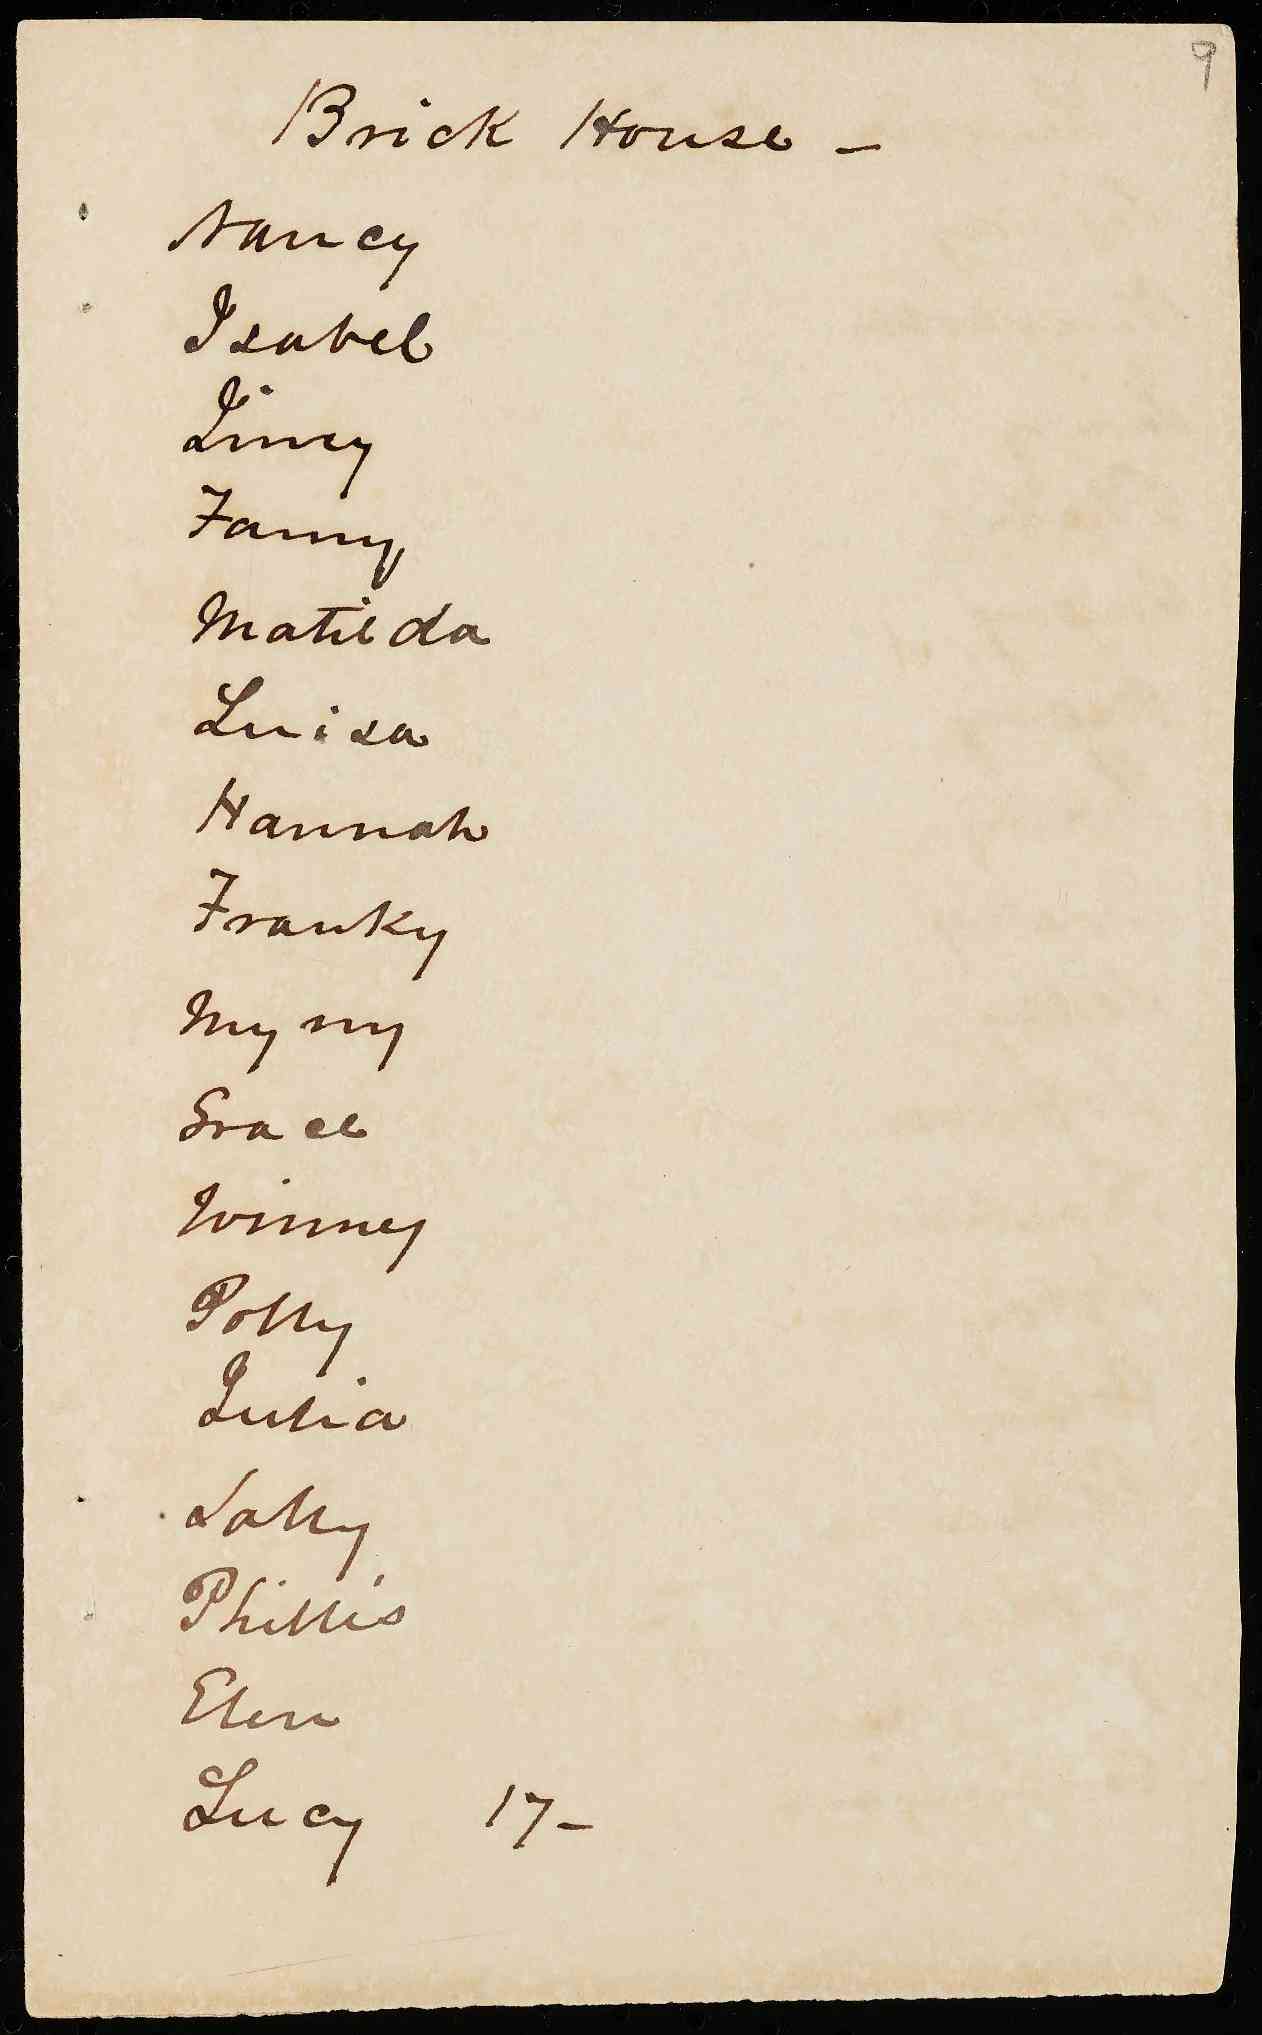 9
Brick House -
Nancy
Isabel
Jincy
Fanny
Matilda
Luisa
Hannah
Franky
Myny
Grace
Winney
Polly
Julia
Sally
Phillis
Elen
Lucy 17-